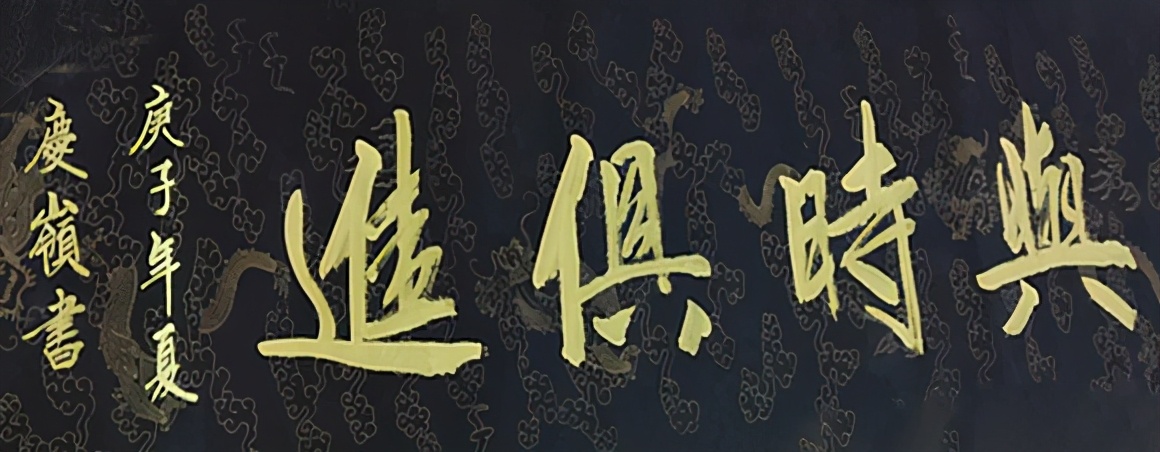 與時俱進
庚子年夏
慶嶺書